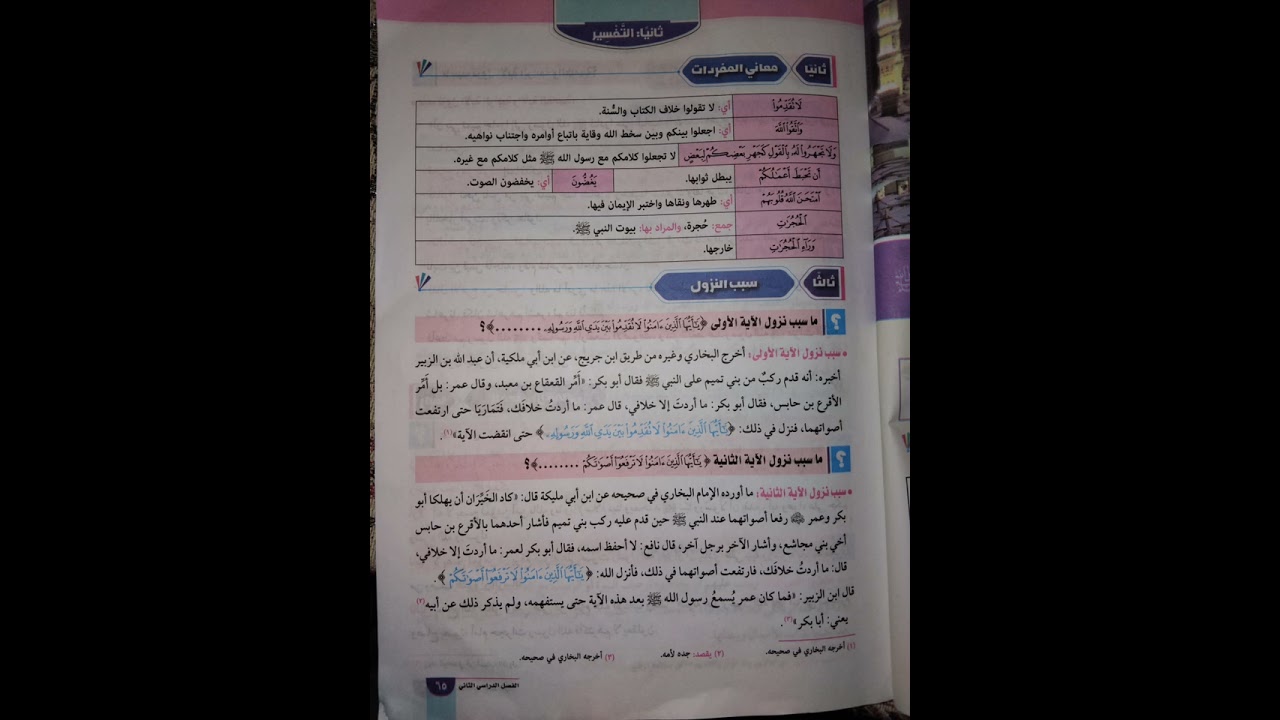 ثانيًا: التَّفْسِير
ثانيًا معاني المفردات
لَا تُقَدِّمُوا أي: لا تقولوا خلاف الكتاب والسُّنة.
وَاتَّقُوا اللَّهَ أي: اجعلوا بينكم وبين سخط الله وقاية باتباع أوامره واجتناب نواهيه.
وَلَا تَجْهَرُوا لَهُ بِالْقَوْلِ كَجَهْرِ بَعْضِكُمْ لِبَعْضٍ لا تجعلوا كلامكم مع رسول الله ﷺ مثل كلامكم مع غيره.
أَن تَحْبَطَ أَعْمَالُكُمْ يبطل ثوابها. يَغُضُّونَ أي: يخفضون الصوت.
امْتَحَنَ اللَّهُ قُلُوبَهُمْ أي: طهرها ونقاها واختبر الإيمان فيها.
الْحُجُرَاتِ جمع: حُجرة، والمراد بها: بيوت النبي ﷺ.
وَرَاءِ الْحُجُرَاتِ خارجها.
ثالثًا سبب النزول
؟ ما سبب نزول الآية الأولى ﴿يَٰٓأَيُّهَا ٱلَّذِينَ ءَامَنُوا۟ لَا تُقَدِّمُوا۟ بَيْنَ يَدَيِ ٱللَّهِ وَرَسُولِهِۦ ........﴾؟
• سبب نزول الآية الأولى: أخرج البخاري وغيره من طريق ابن جريج، عن ابن أبي ملكية، أن عبد الله بن الزبير
أخبره: أنه قدم ركبٌ من بني تميم على النبي ﷺ فقال أبو بكر: «أَمِّر القعقاع بن معبد، وقال عمر: بل أَمِّر
الأقرع بن حابس، فقال أبو بكر: ما أردتَ إلا خلافي، قال عمر: ما أردتُ خلافَك، فَتَمَارَيَا حتى ارتفعت
أصواتهما، فنزل في ذلك: ﴿يَٰٓأَيُّهَا ٱلَّذِينَ ءَامَنُوا۟ لَا تُقَدِّمُوا۟ بَيْنَ يَدَيِ ٱللَّهِ وَرَسُولِهِۦ﴾ حتى انقضت الآية»(١).
؟ ما سبب نزول الآية الثانية ﴿يَٰٓأَيُّهَا ٱلَّذِينَ ءَامَنُوا۟ لَا تَرْفَعُوٓا۟ أَصْوَٰتَكُمْ ........﴾؟
• سبب نزول الآية الثانية: ما أورده الإمام البخاري في صحيحه عن ابن أبي مليكة قال: «كاد الخَيِّرَان أن يهلكا أبو
بكر وعمر رفعا أصواتهما عند النبي ﷺ حين قدم عليه ركب بني تميم فأشار أحدهما بالأقرع بن حابس
أخي بني مجاشع، وأشار الآخر برجل آخر، قال نافع: لا أحفظ اسمه، فقال أبو بكر لعمر: ما أردتَ إلا خلافي،
قال: ما أردتُ خلافَك، فارتفعت أصواتهما في ذلك، فأنزل الله: ﴿يَٰٓأَيُّهَا ٱلَّذِينَ ءَامَنُوا۟ لَا تَرْفَعُوٓا۟ أَصْوَٰتَكُمْ﴾.
قال ابن الزبير: «فما كان عمر يُسمعُ رسول الله ﷺ بعد هذه الآية حتى يستفهمه، ولم يذكر ذلك عن أبيه(٢)
يعني: أبا بكر»(٣).
(١) أخرجه البخاري في صحيحه. (٢) يقصد: جده لأمه. (٣) أخرجه البخاري في صحيحه.
الفصل الدراسي الثاني ٦٥